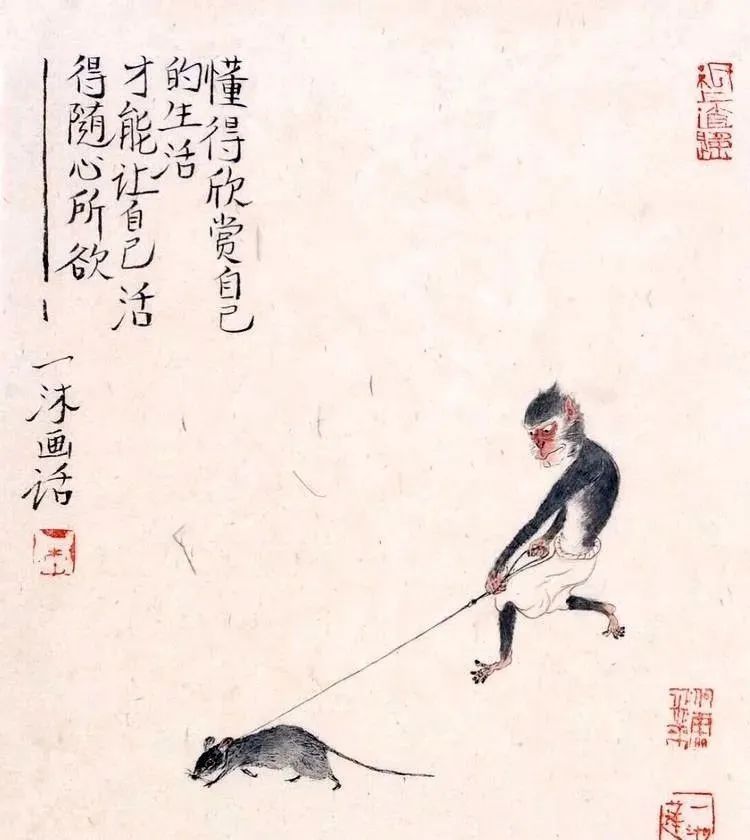 懂得欣赏自己
的生活
才能让自己活
得随心所欲
一沐画话